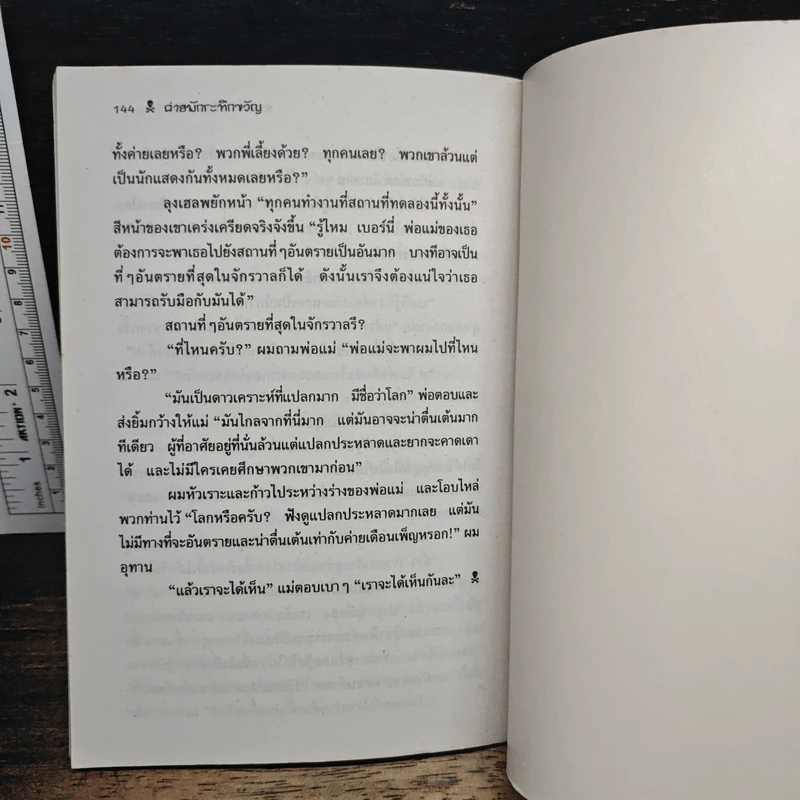 144 ☠ ค่ายพักระทึกขวัญ
ทั้งค่ายเลยหรือ? พวกพี่เลี้ยงด้วย? ทุกคนเลย? พวกเขาล้วนแต่
เป็นนักแสดงกันทั้งหมดเลยหรือ?”
ลุงเฮลพยักหน้า “ทุกคนทำงานที่สถานที่ทดลองนี้ทั้งนั้น”
สีหน้าของเขาเคร่งเครียดจริงจังขึ้น “รู้ไหม เบอร์นี่ พ่อแม่ของเธอ
ต้องการจะพาเธอไปยังสถานที่ๆอันตรายเป็นอันมาก บางทีอาจเป็น
ที่ๆอันตรายที่สุดในจักรวาลก็ได้ ดังนั้นเราจึงต้องแน่ใจว่าเธอ
สามารถรับมือกับมันได้”
สถานที่ๆอันตรายที่สุดในจักรวาลรึ?
“ที่ไหนครับ?” ผมถามพ่อแม่ “พ่อแม่จะพาผมไปที่ไหน
หรือ?”
“มันเป็นดาวเคราะห์ที่แปลกมาก มีชื่อว่าโลก” พ่อตอบและ
ส่งยิ้มกว้างให้แม่ “มันไกลจากที่นี่มาก แต่มันอาจจะน่าตื่นเต้นมาก
ทีเดียว ผู้ที่อาศัยอยู่ที่นั่นล้วนแต่แปลกประหลาดและยากจะคาดเดา
ได้ และไม่มีใครเคยศึกษาพวกเขามาก่อน”
ผมหัวเราะและก้าวไประหว่างร่างของพ่อแม่ และโอบไหล่
พวกท่านไว้ “โลกหรือครับ? ฟังดูแปลกประหลาดมากเลย แต่มัน
ไม่มีทางที่จะอันตรายและน่าตื่นเต้นเท่ากับค่ายเดือนเพ็ญหรอก!” ผม
อุทาน
“แล้วเราจะได้เห็น” แม่ตอบเบาๆ “เราจะได้เห็นกันละ” ☠
inches 1 2
AKTION
9 10 11